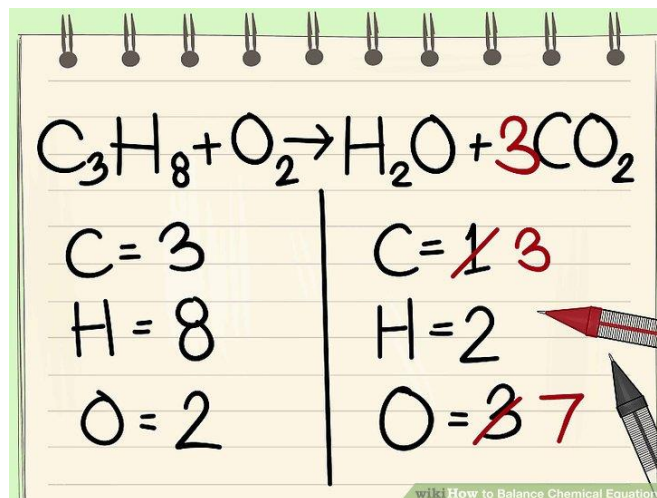 C₃H₈+O₂→H₂O+3CO₂
C=3
H=8
O=2
C=1 3
H=2
O=3 7
wikiHow to Balance Chemical Equations